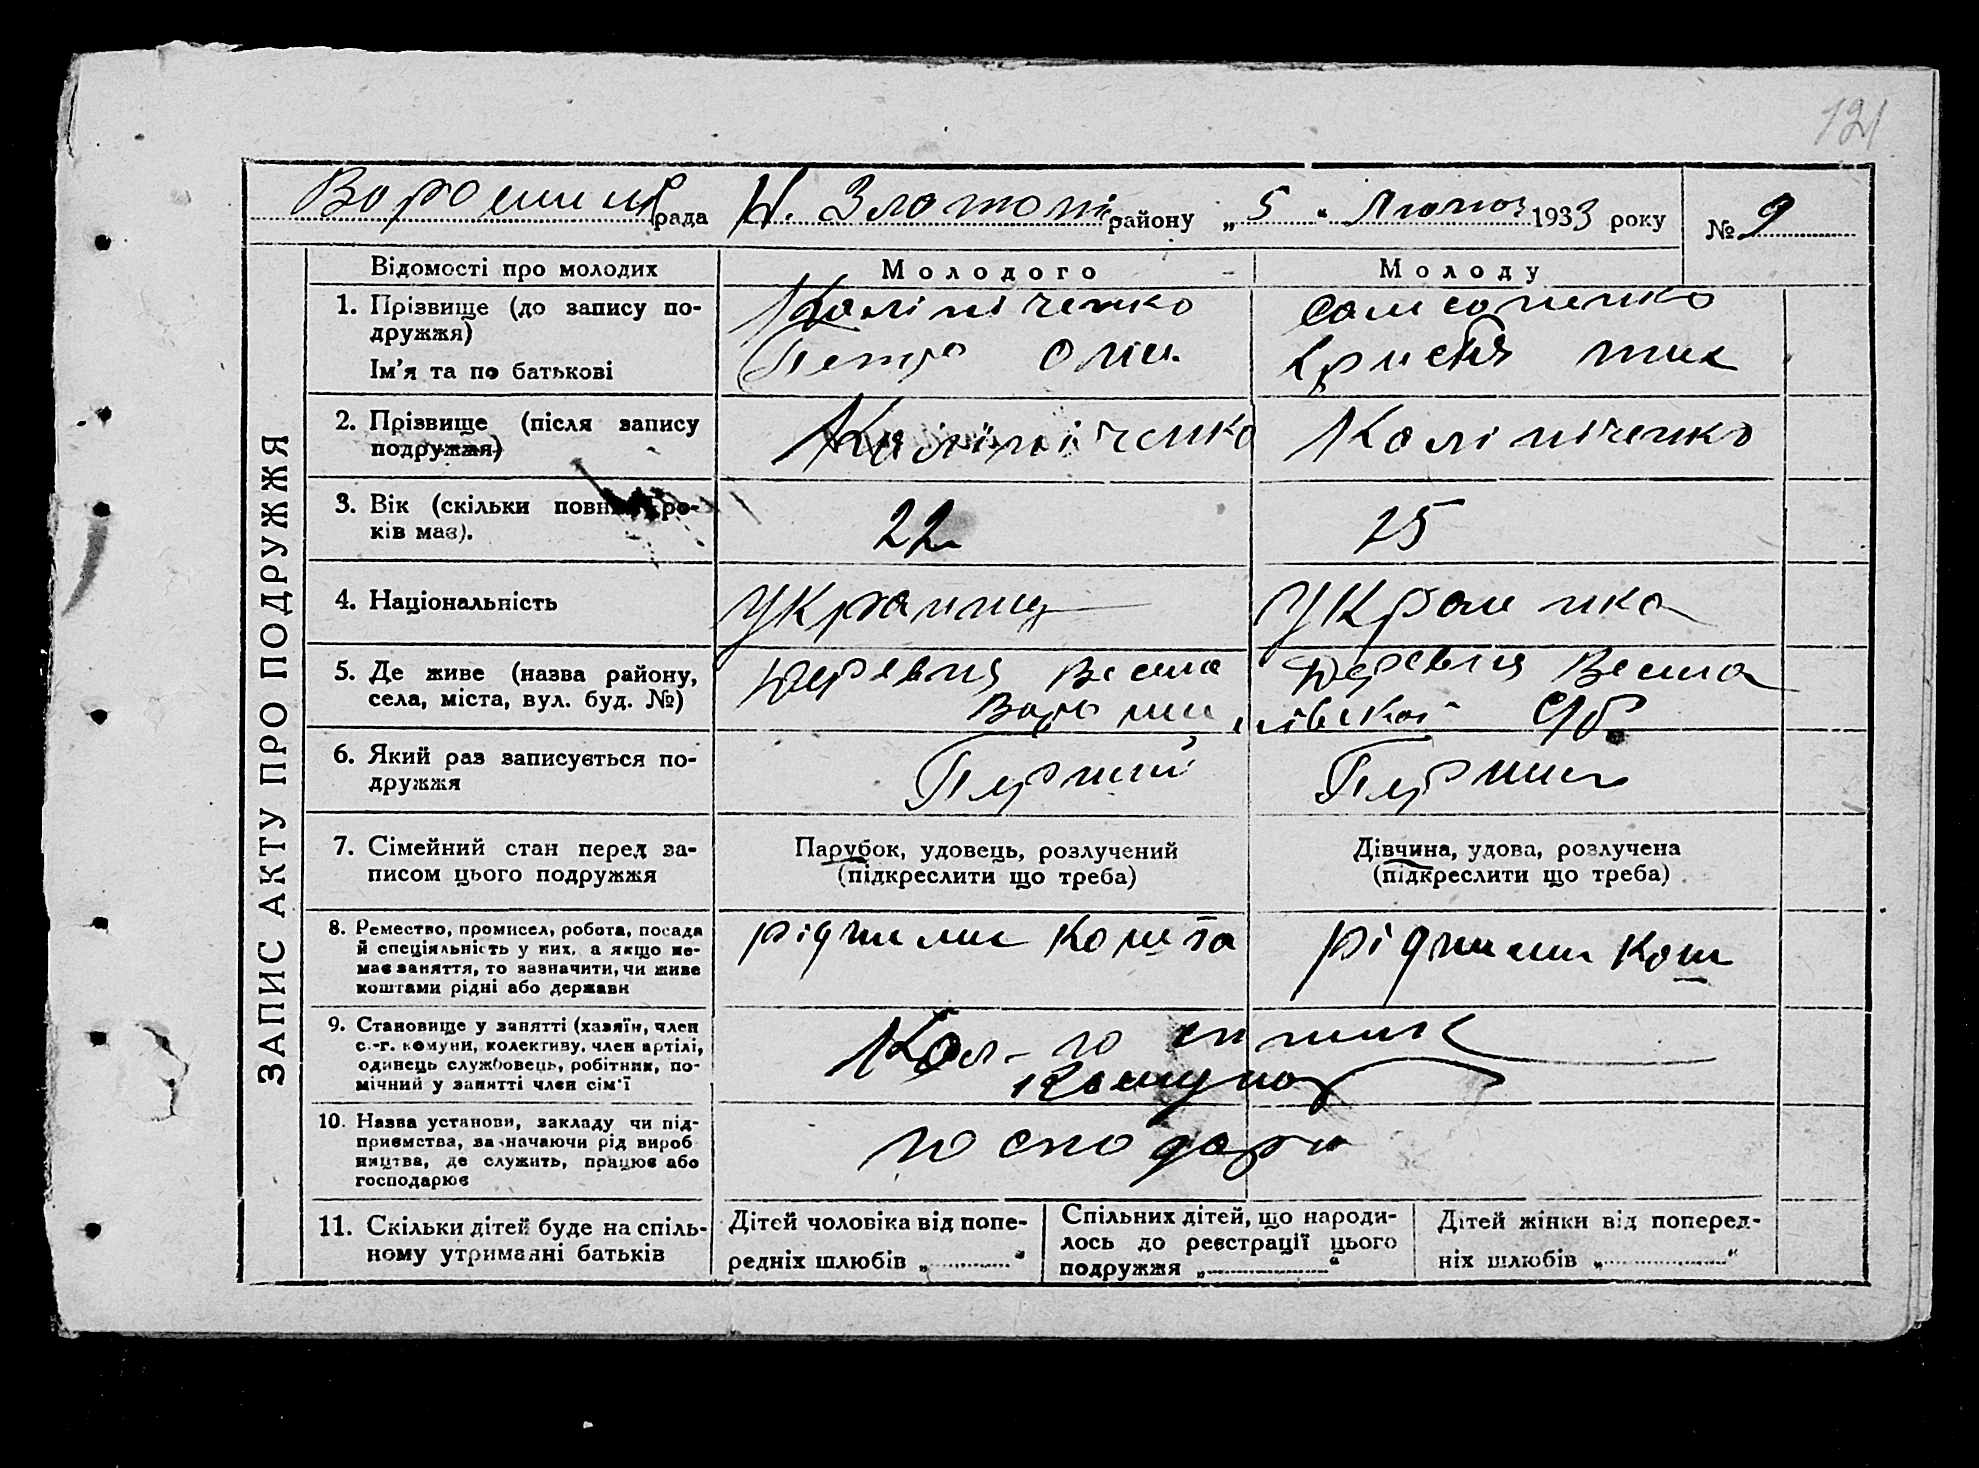 121
Ворошилів рада Н. Златопіль району „ 5 “ Лютого 1933 року № 9
ЗАПИС АКТУ ПРО ПОДРУЖЖЯ
Відомості про молодих
Молодого
Молоду
1. Прізвище (до запису по-
дружжя)
Ім'я та по батькові
Калініченко
Петро
Самсоненко
Кристя
2. Прізвище (після запису
подружжя)
Калініченко
Калініченко
3. Вік (скільки повних ро-
ків має).
22
25
4. Національність
Українец
Українка
5. Де живе (назва району,
села, міста, вул. буд. №)
деревня Весела
Деревля Весела
Ворошилівської С/б.
6. Який раз записується по-
дружжя
Перший
Перший
7. Сімейний стан перед за-
писом цього подружжя
Парубок, удовець, розлучений
(підкреслити що треба)
Дівчина, удова, розлучена
(підкреслити що треба)
8. Ремество, промисел, робота, посада
й спеціяльність у них, а якщо не-
має заняття, то зазначити, чи живе
коштами рідні або держави
рідними кошта
рідними кош
9. Становище у занятті (хазяїн, член
с.-г. комуни, колективу, член артілі,
одинець службовець, робітник, по-
мічний у занятті член сім'ї
Кол-го спник
10. Назва установи, закладу чи під-
приємства, зазначаючи рід вироб
ництва, де служить, працює або
господарює
господарю
11. Скільки дітей буде на спіль-
ному утриманні батьків
Дітей чоловіка від попе-
редніх шлюбів „ “
Спільних дітей, що народи-
лось до реєстрації цього
подружжя „ “
Дітей жінки від поперед-
ніх шлюбів „ “